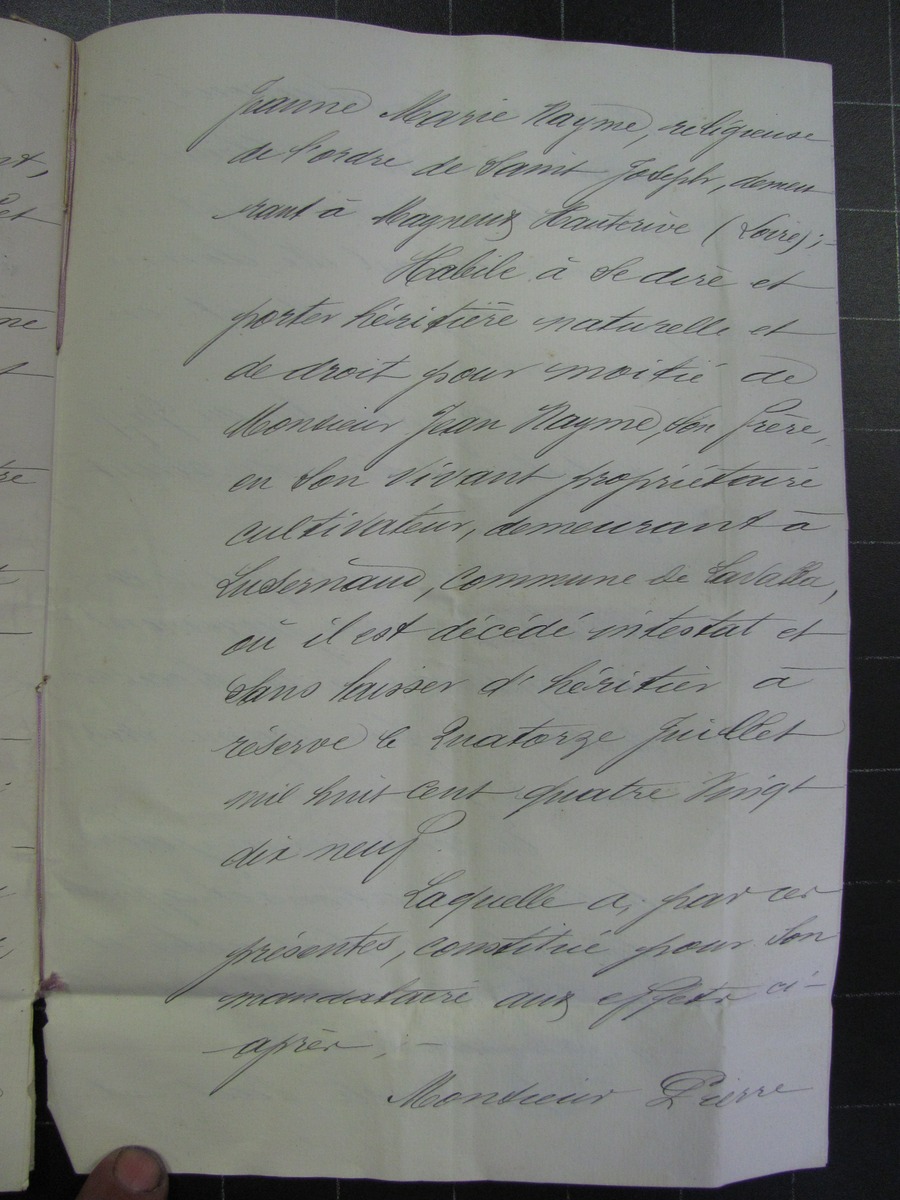 Jeanne Marie Nayme, religieuse
de l'ordre de Saint Joseph, demeu
rant à Magneux Hauterive (Loire);-
Habile à se dire et
porter héritière naturelle et
de droit pour moitié de
Monsieur Jean Nayme, son frère,
en son vivant propriétaire
cultivateur, demeurant à
Luzernaud, commune de Lavalla,
où il est décédé intestat et
sans laisser d'héritier à
réserve le Quatorze Juillet
mil huit cent quatre vingt
dix neuf.
Laquelle a, par ces
présentes, constitué pour son
mandataire aux effets ci-
après;-
Monsieur Pierre
nt,
et
ne